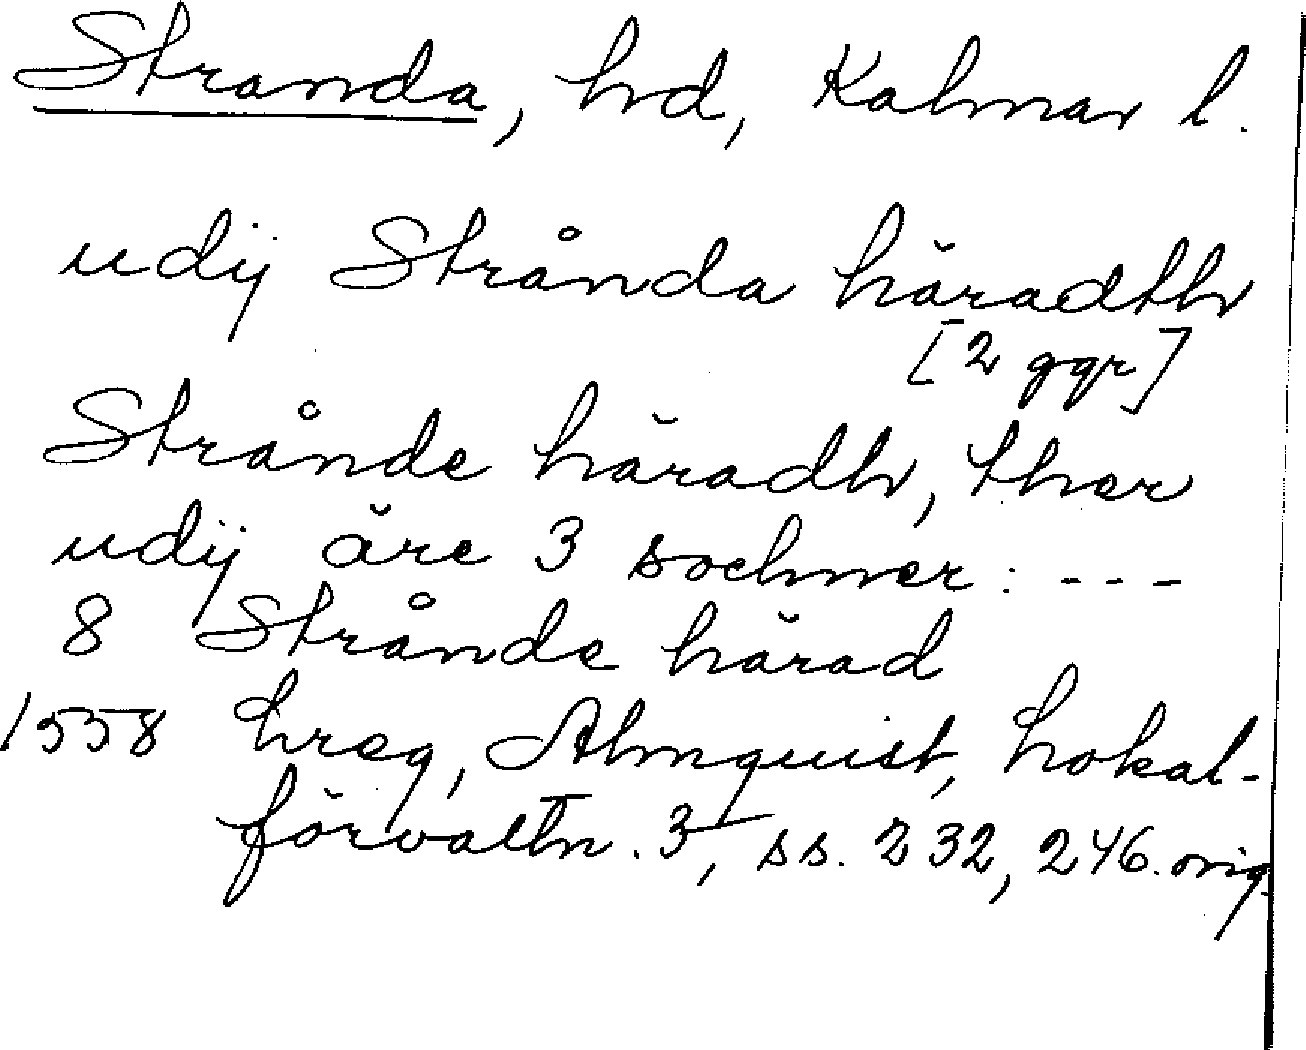 Stranda, hd, Kalmar l.
udij Strånda häradth
[2 ggr]
Strånde häradh, ther
udij äre 3 sochner: ---
8 Strånde härad
1558 hreg, Almquist, Lokal-
förvaltn. 3, ss. 232, 246. orig.